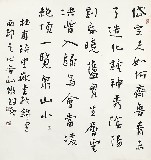 岱宗夫如何齊魯青未
了造化鍾神秀陰陽
割昏曉盪胸生層雲
決眥入歸鳥會當凌
絕頂一覽衆山小
杜甫詩望嶽